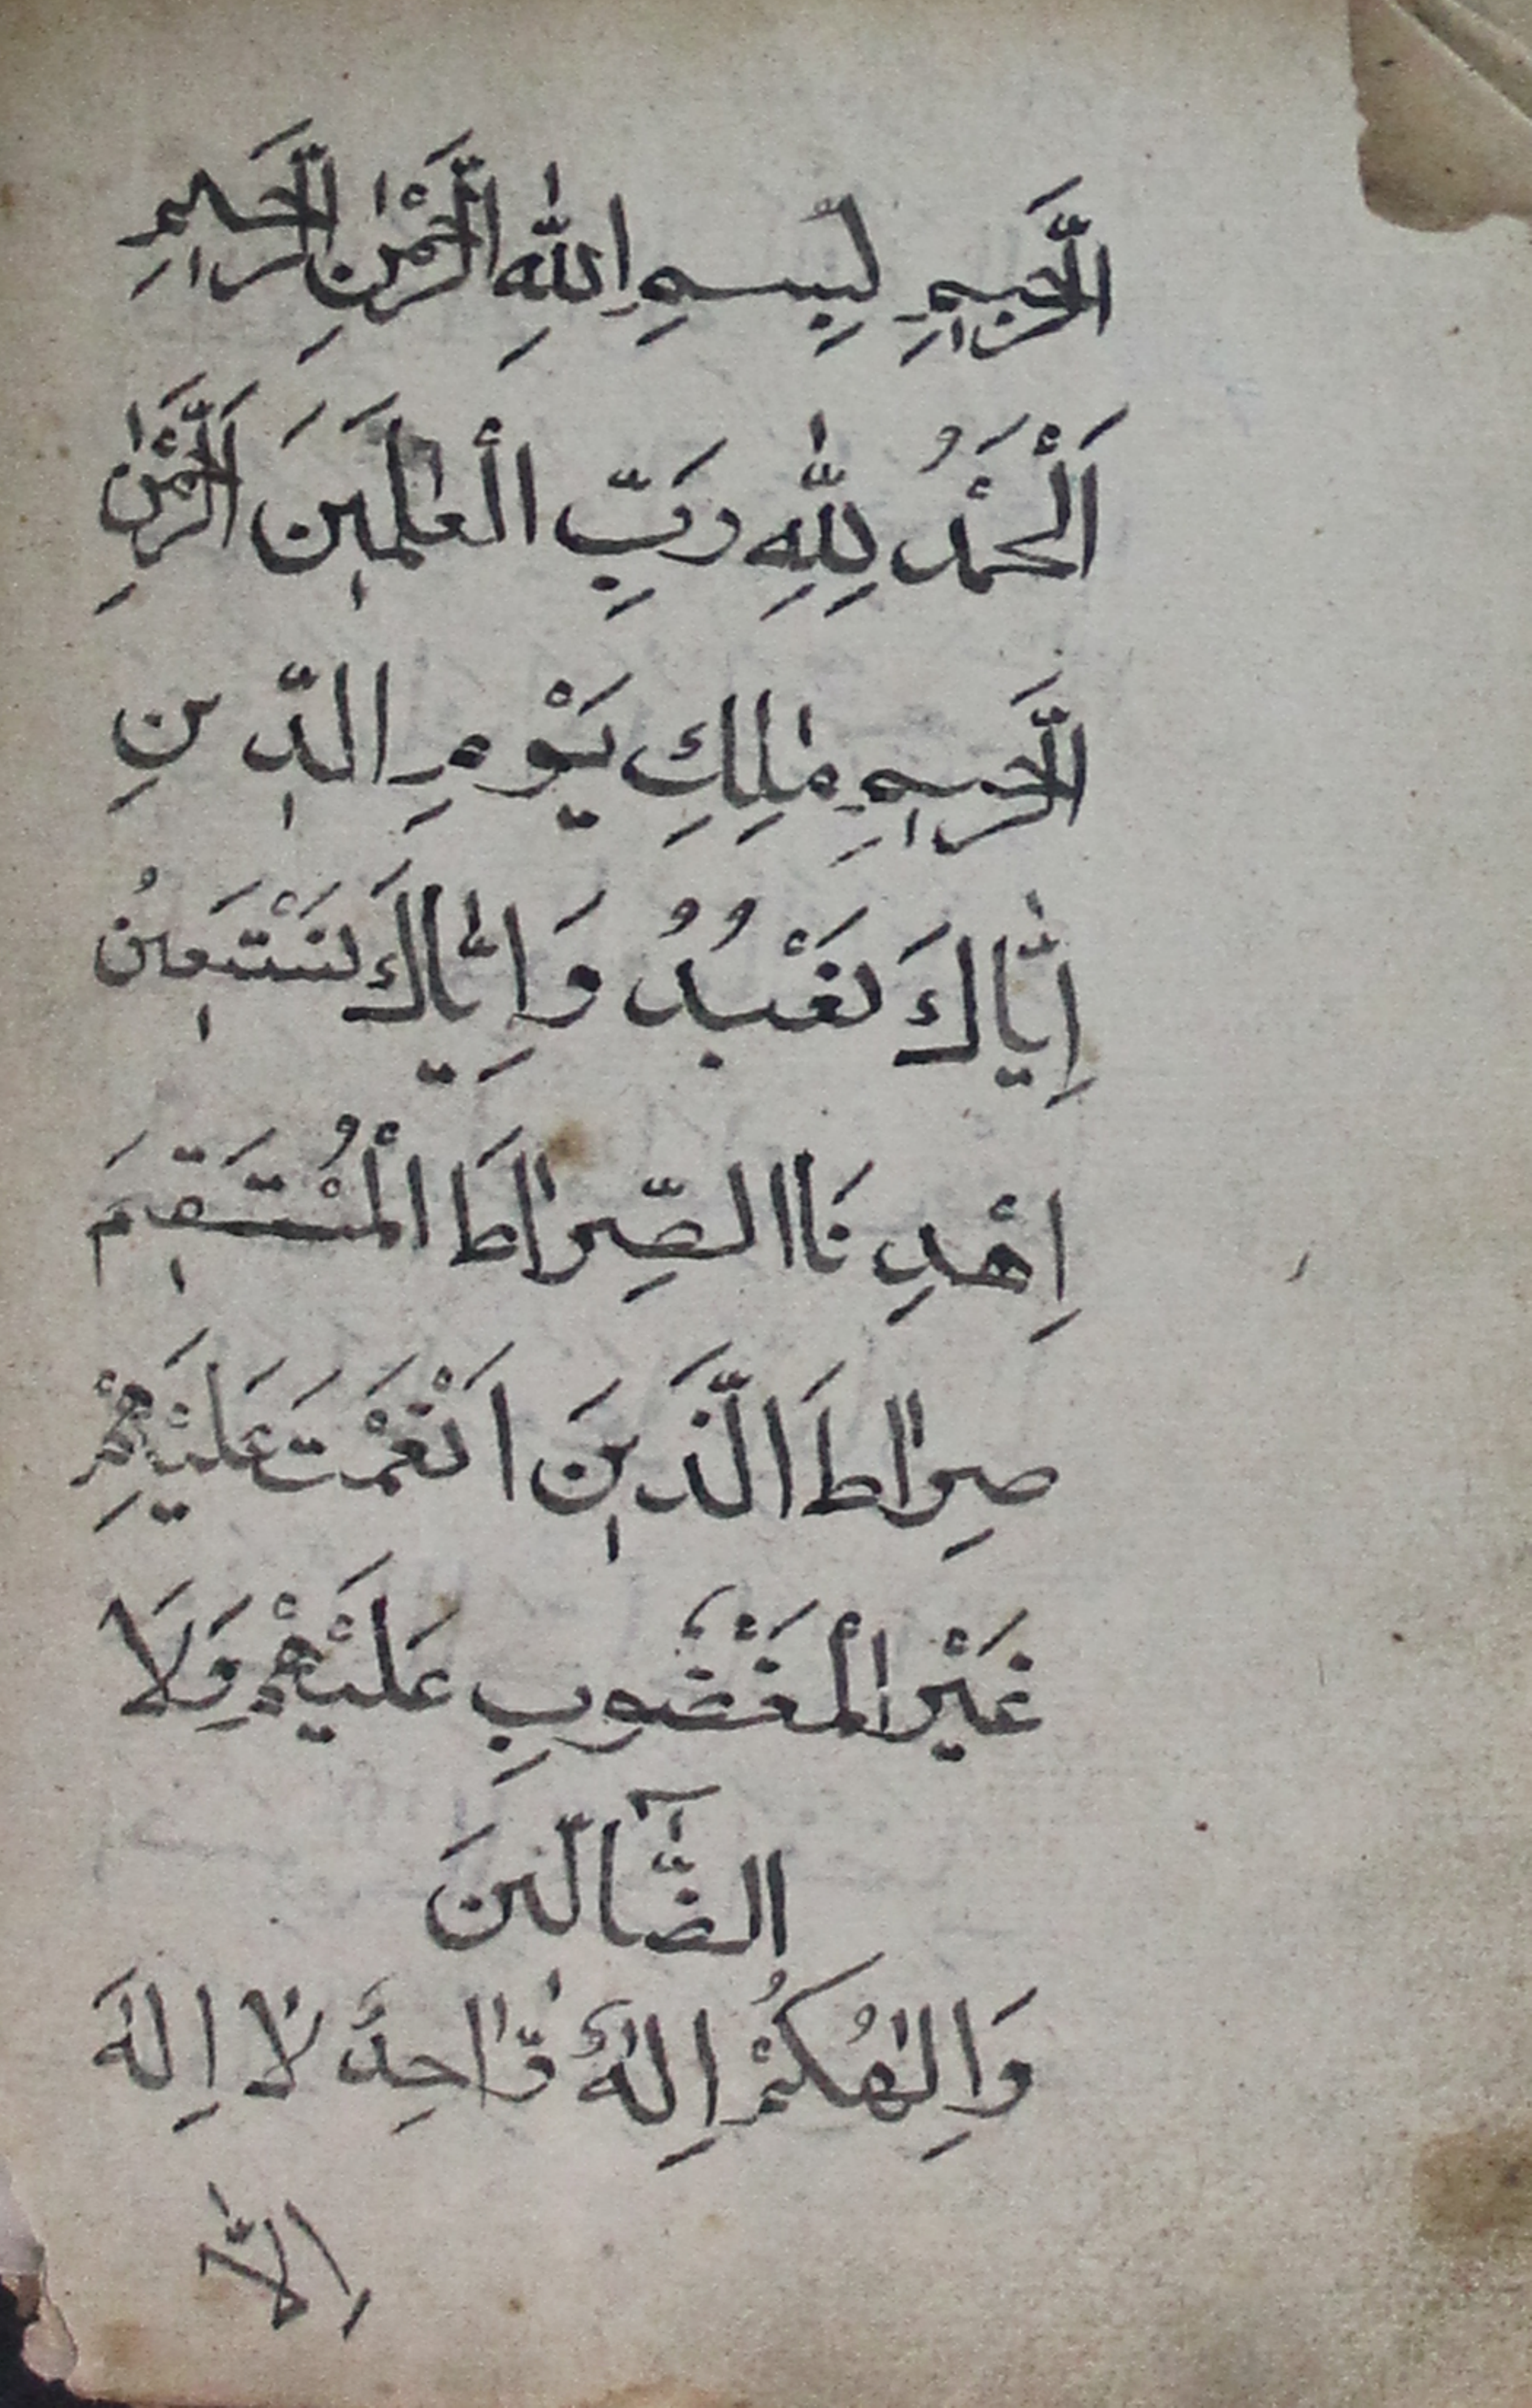 الرَّجِيمِ لِبِسْمِ اللّٰهِ الرَّحْمٰنِ الرَّحِيمِ
اَلْحَمْدُ لِلّٰهِ رَبِّ الْعٰلَمِينَ اَلرَّحْمٰنِ
الرَّحِيمِ مٰلِكِ يَوْمِ الدِّينِ
اِيَّاكَ نَعْبُدُ وَاِيَّاكَ نَسْتَعِينُ
اِهْدِنَا الصِّرٰاطَ الْمُسْتَقِيمَ
صِرٰاطَ الَّذِينَ اَنْعَمْتَ عَلَيْهِمْ
غَيْرِ الْمَغْضُوبِ عَلَيْهِمْ وَلَا
الضَّآلِّينَ
وَاِلٰهُكُمْ اِلٰهٌ وَّاحِدٌ لَا اِلٰهَ
اِلَّا